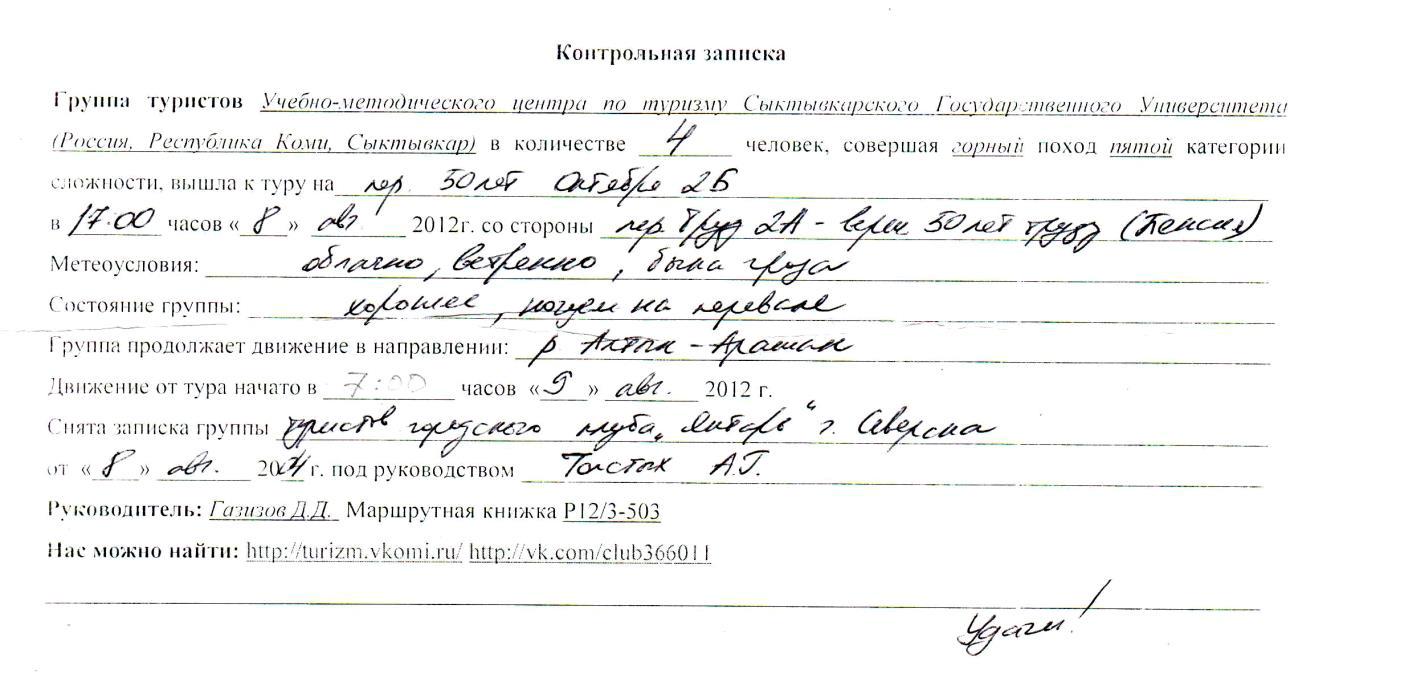 Контрольная записка
Группа туристов Учебно-методического центра по туризму Сыктывкарского Государственного Университета
(Россия, Республика Коми, Сыктывкар) в количестве 4 человек, совершая горный поход пятой категории
сложности, вышла к туру на пер. 50 лет Октября 2Б
в 17:00 часов «8» авг. 2012г. со стороны пер. Труд 2А - верш 50 лет труду
Метеоусловия: облачно, ветренно, была гроза
Состояние группы: хорошее, ночуем на перевале
Группа продолжает движение в направлении: р Алтын-Арашан
Движение от тура начато в 7:00 часов «9» авг. 2012 г.
Снята записка группы туристов городского клуба „Янтарь“ г. Северска
от «8» авг. г. под руководством Толстых А.Г.
Руководитель: Газизов Д.Д. Маршрутная книжка Р12/3-503
Нас можно найти: http://turizm.vkomi.ru/ http://vk.com/club366011
Удачи!